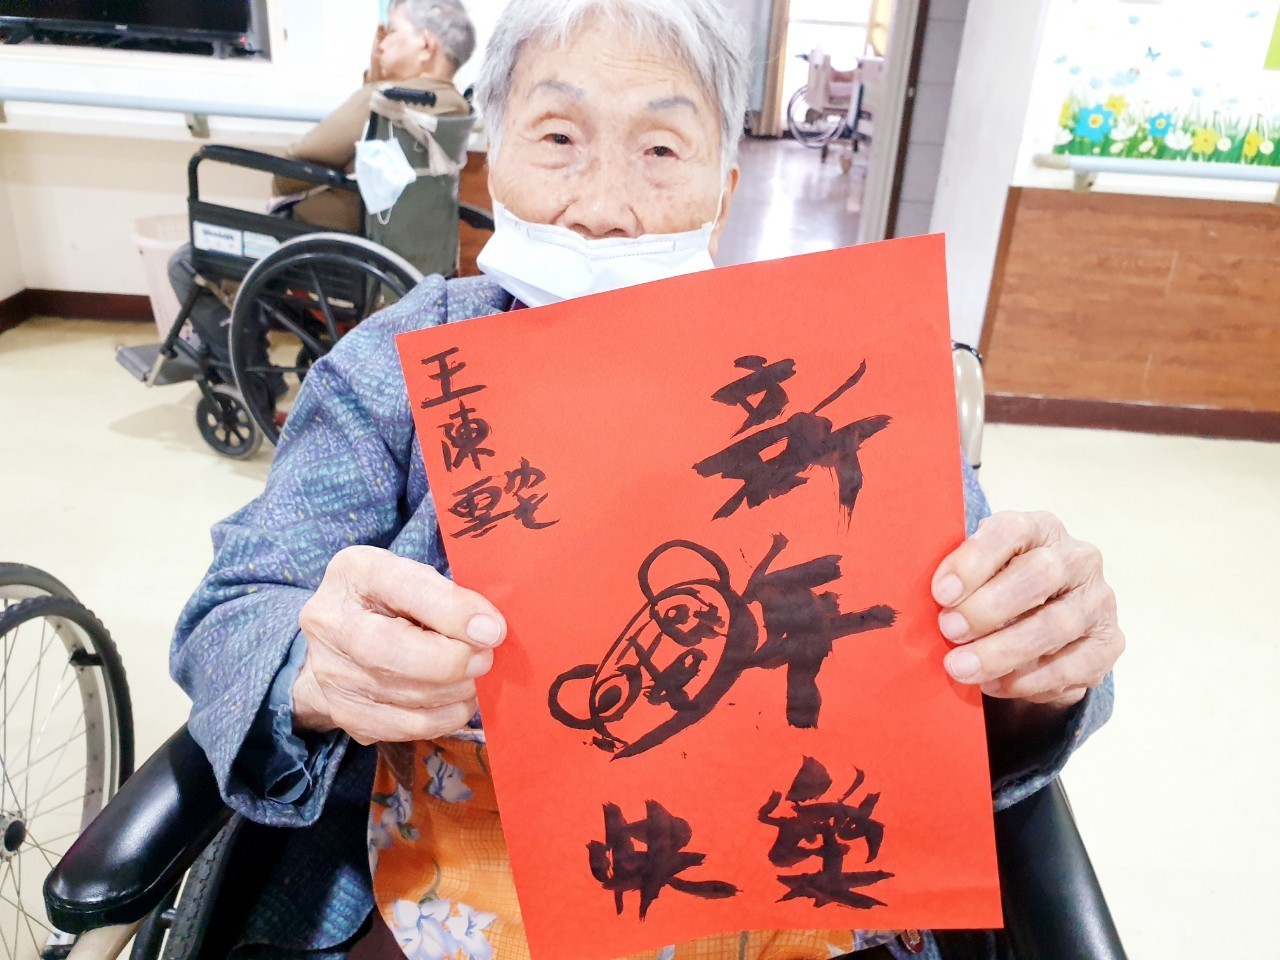 新
年
快樂
王陳